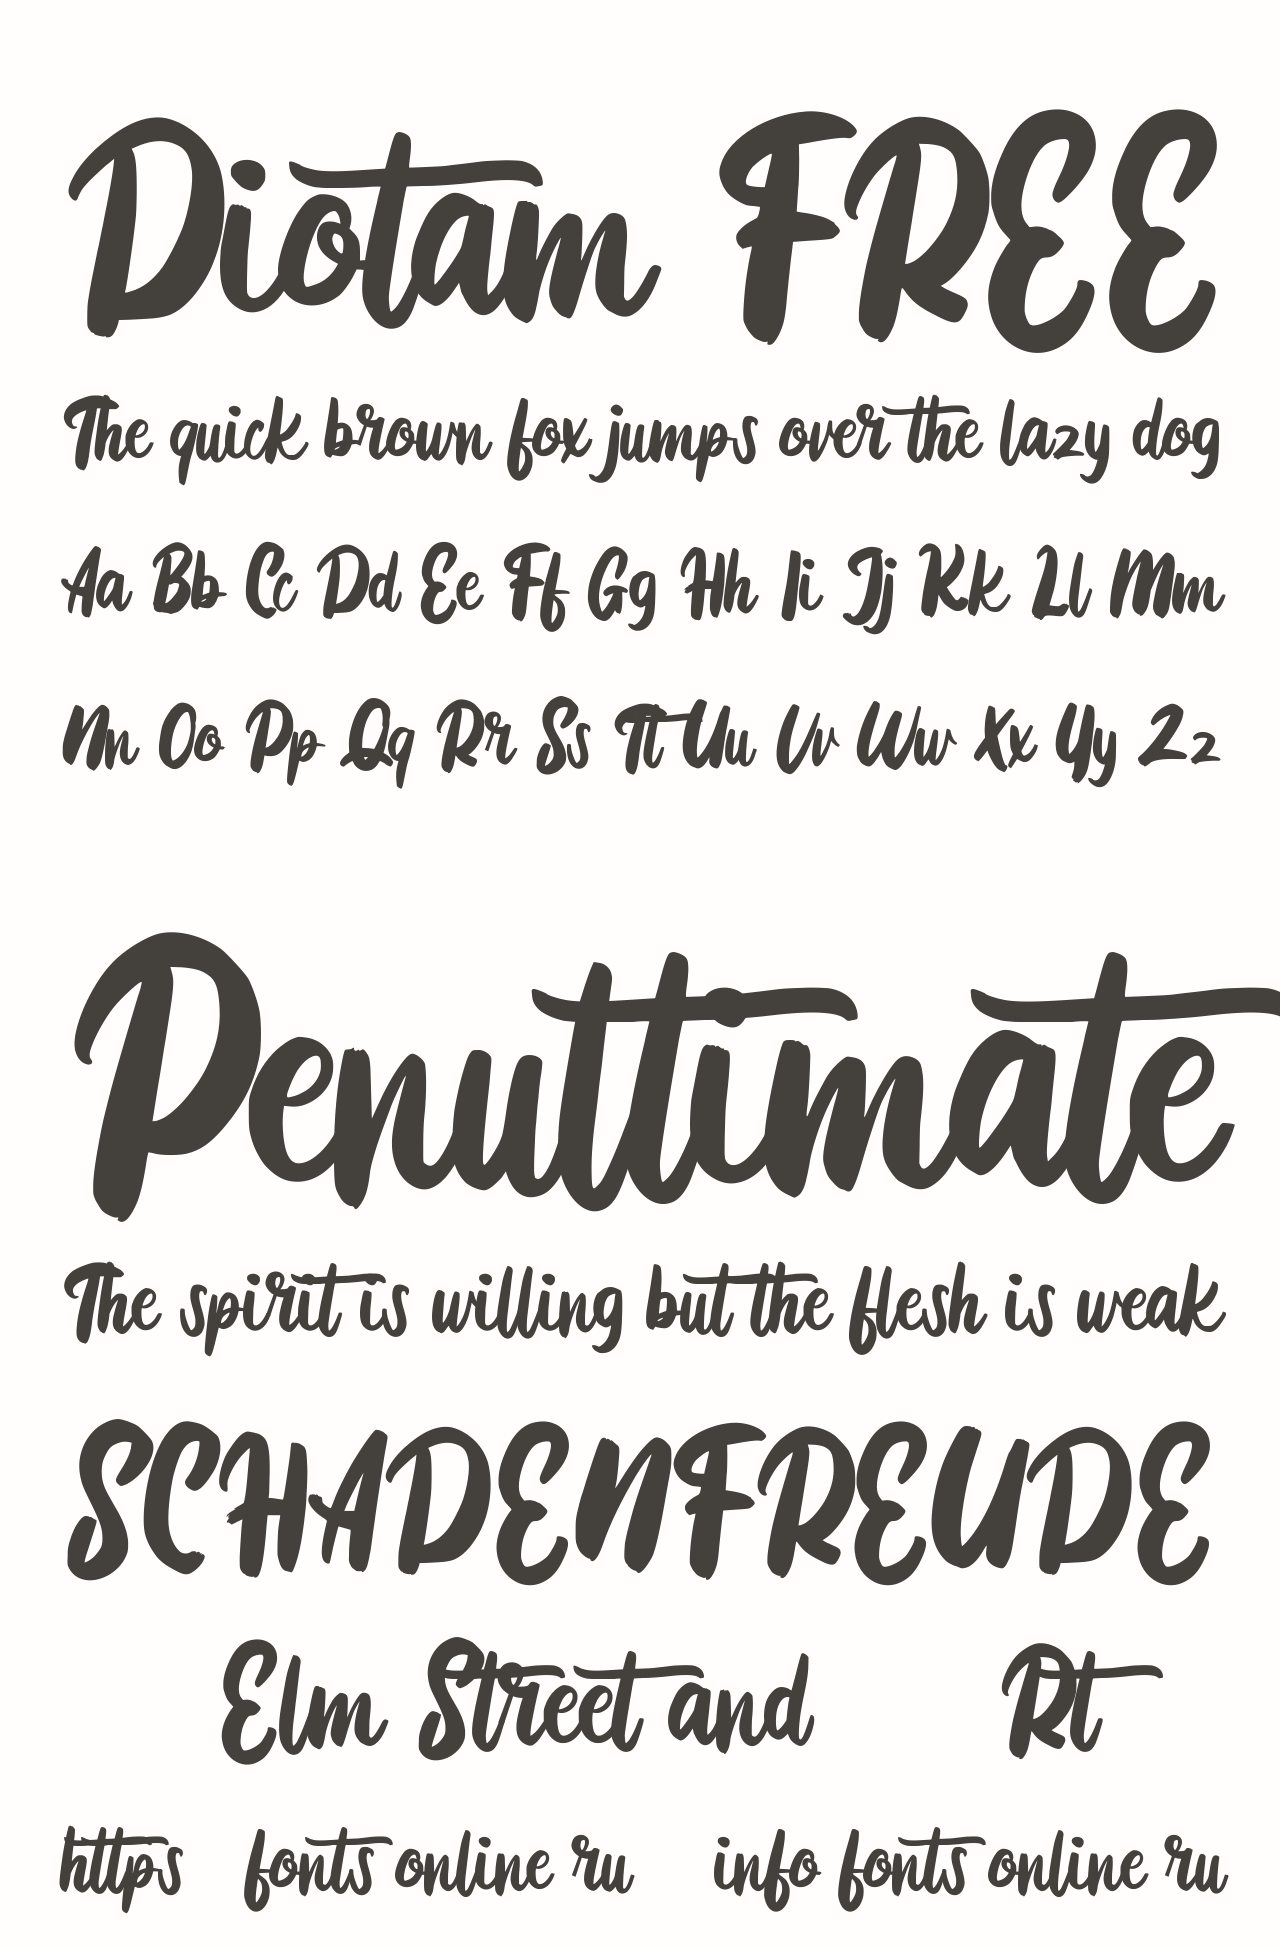 Diotam FREE
The quick brown fox jumps over the lazy dog
Aa Bb Cc Dd Ee Ff Gg Hh Ii Jj Kk Ll Mm
Nn Oo Pp Qq Rr Ss Tt Uu Vv Ww Xx Yy Zz
Penultimate
The spirit is willing but the flesh is weak
SCHADENFREUDE
Elm Street and Rt
https fonts online ru info fonts online ru